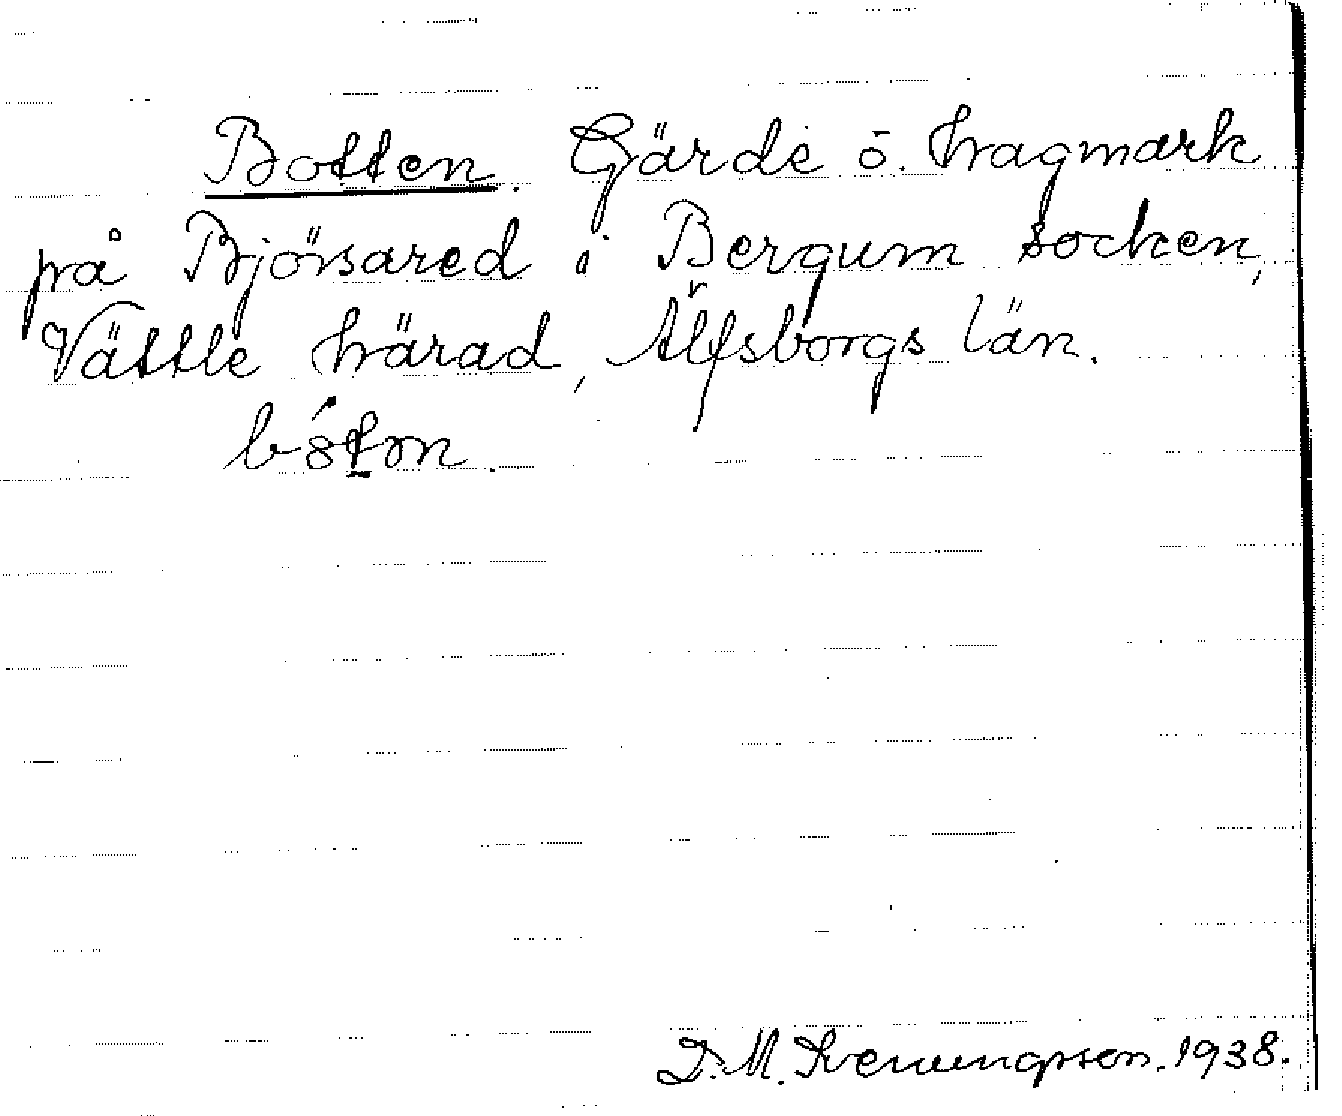 Botten. Gärde ö. hagmark
på Björsared i Bergum socken,
Vättle härad, Älfsborgs län.
D. M. Svenungsson. 1938.